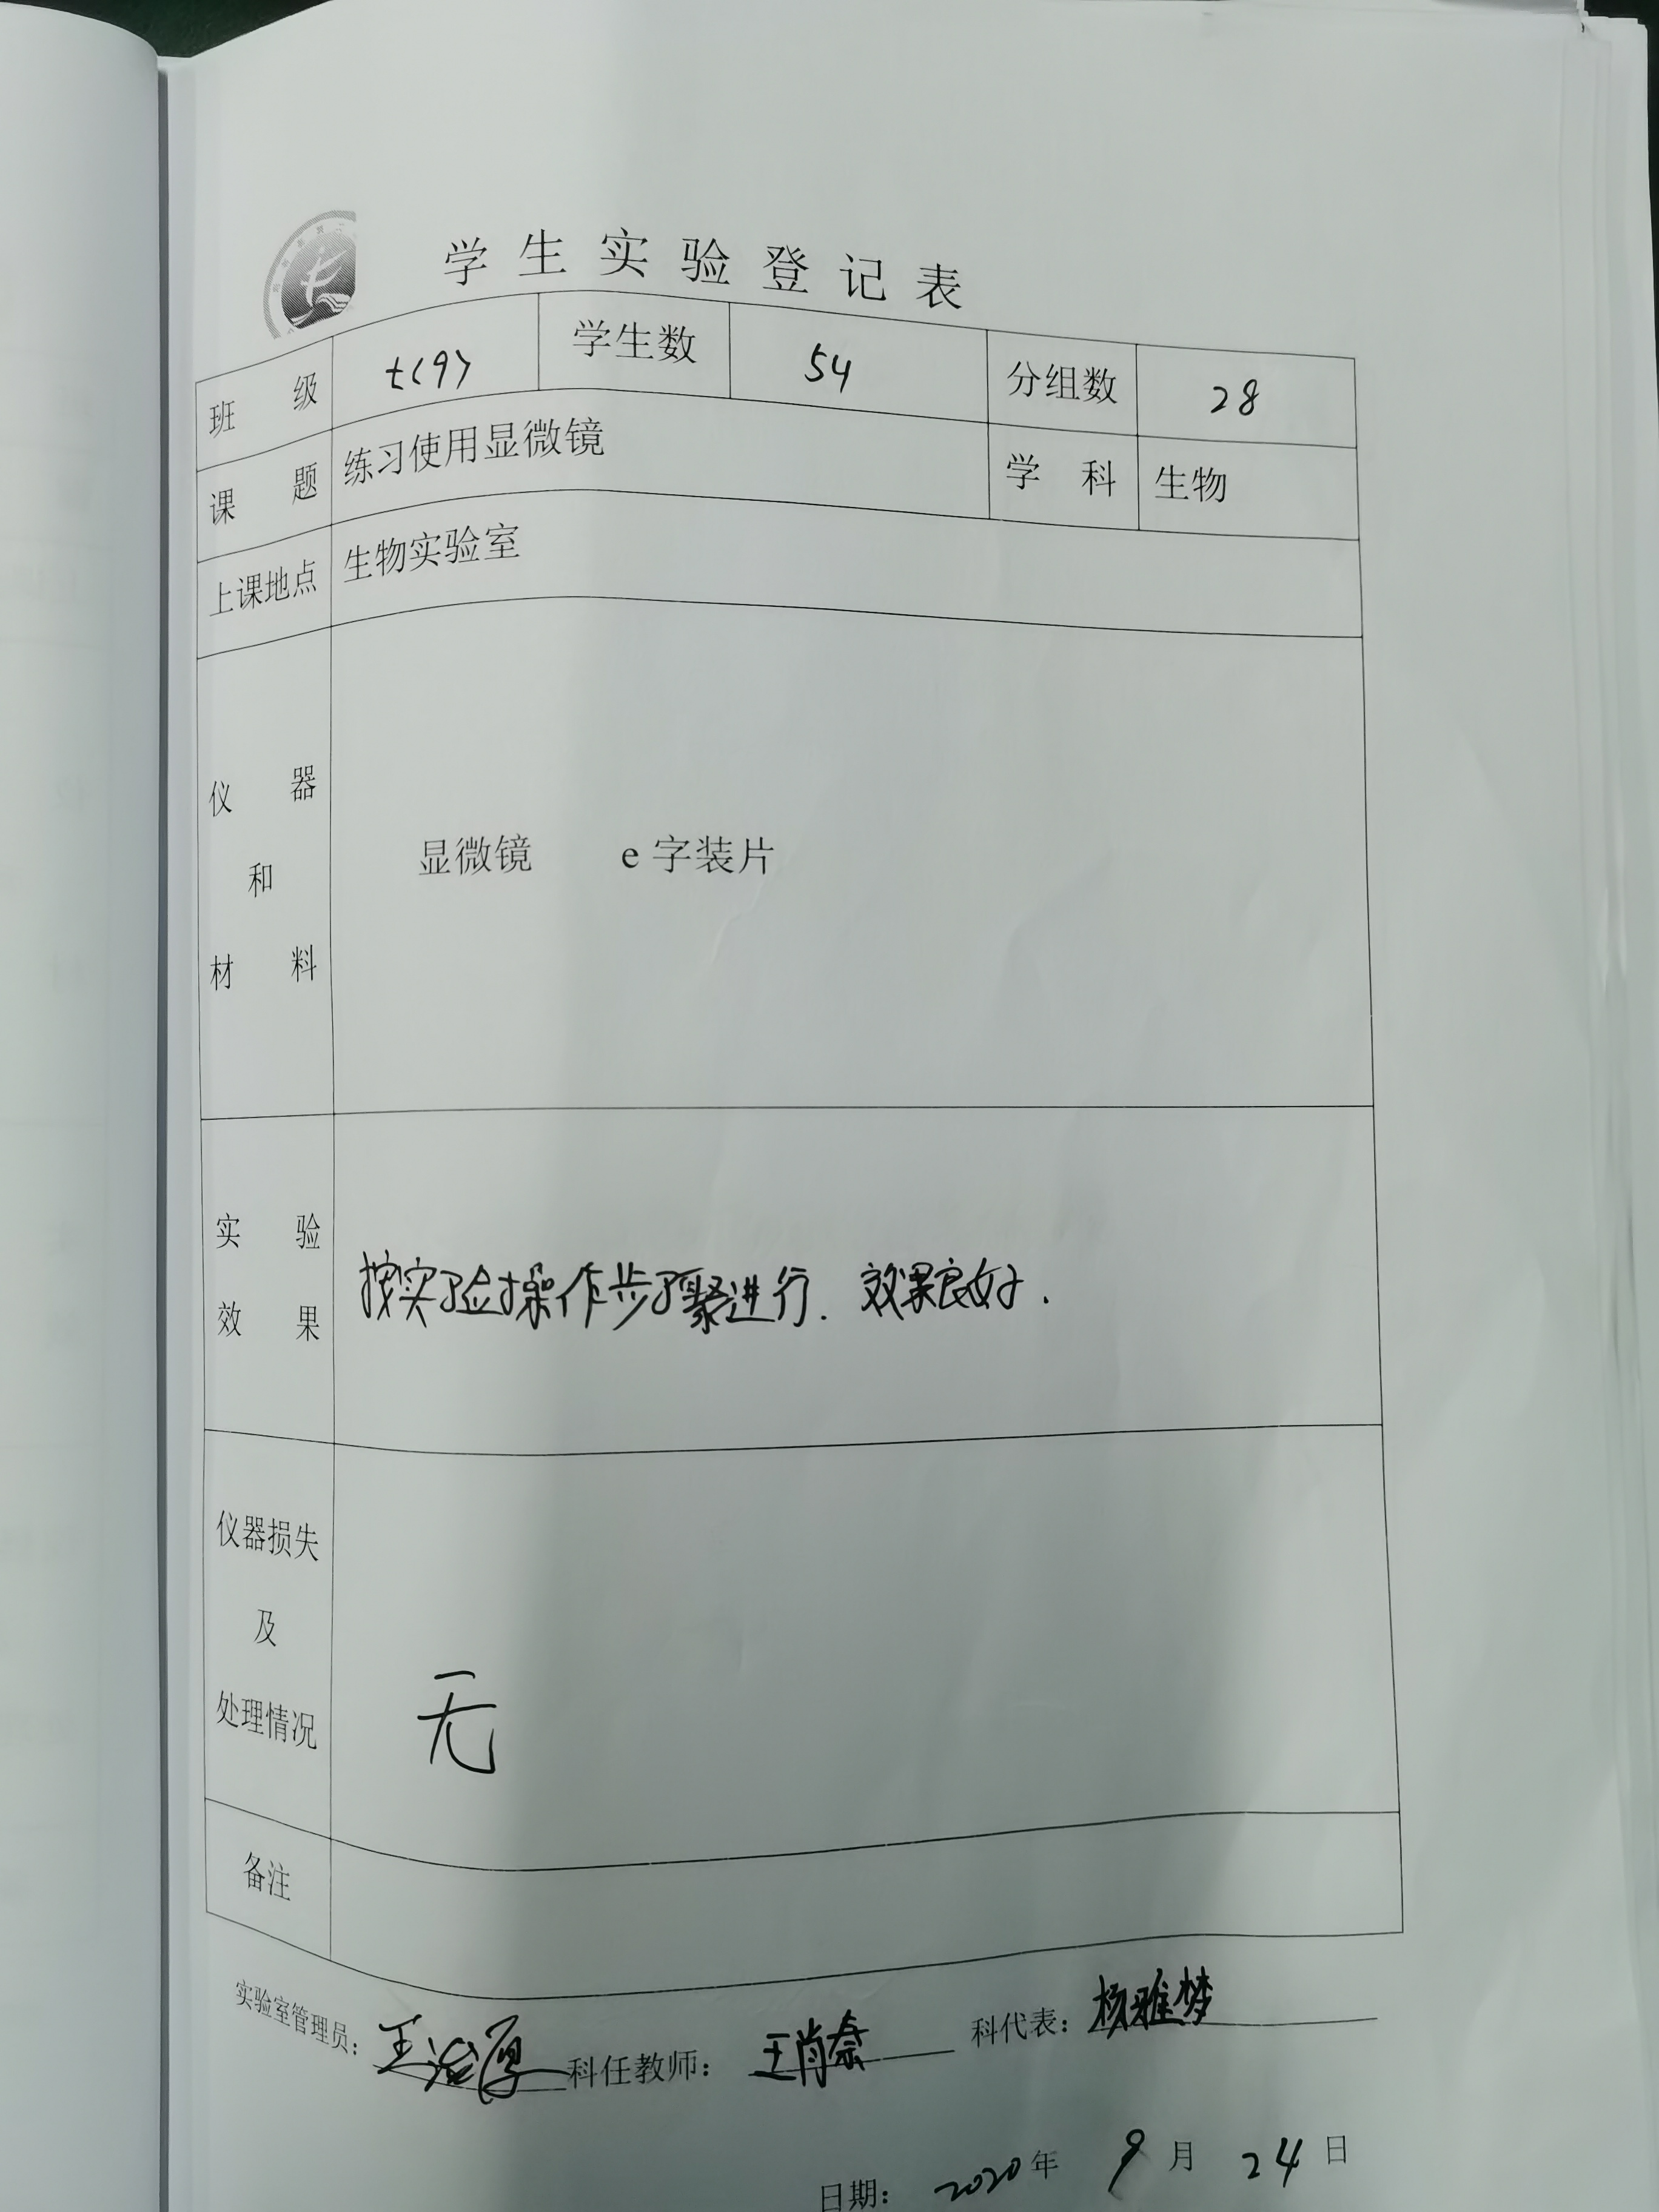 学生实验登记表
班级 七(9) 学生数 54 分组数 28
课题 练习使用显微镜 学科 生物
上课地点 生物实验室
仪器和材料 显微镜 e字装片
实验效果 按实验操作步骤进行. 效果良好.
仪器损失及处理情况 无
备注
实验室管理员: 王 科任教师: 王肖奈 科代表: 杨雅梦
日期: 2020年 9月 24日